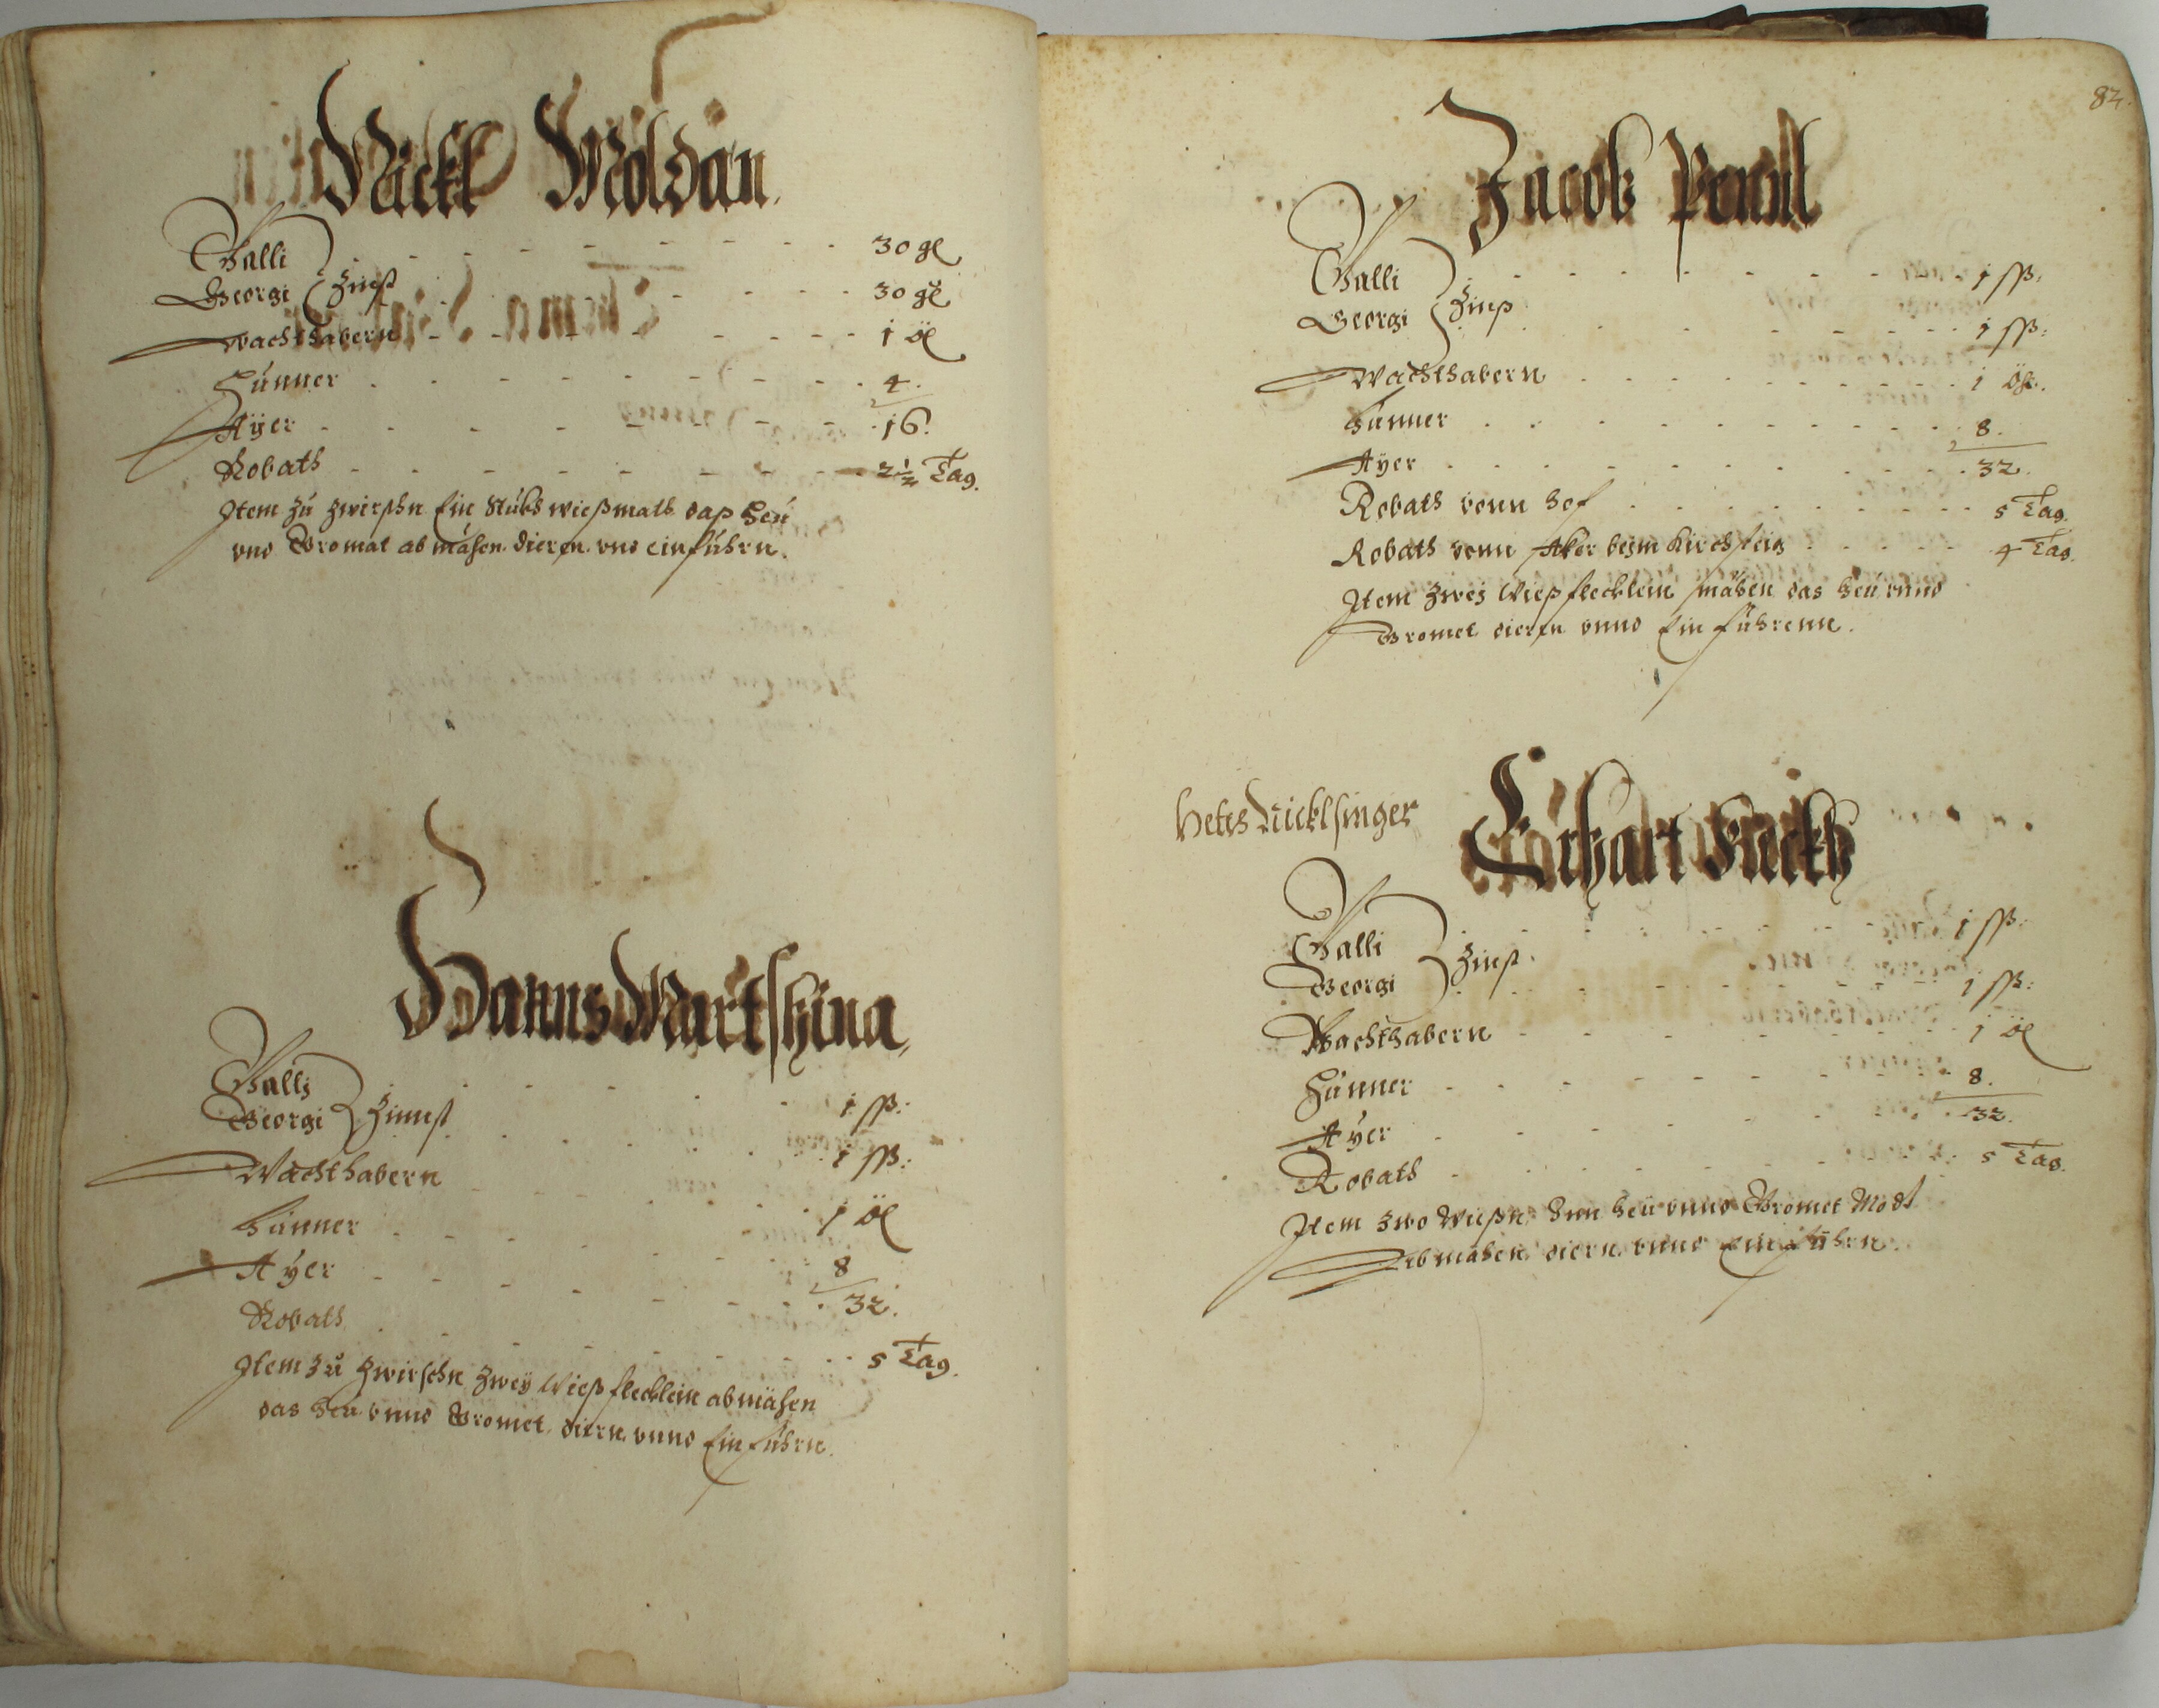 Nickl Moldan.
Galli
Georgi Zinß
30 gl
30 gl
Wachthabern 1 öl
Hünner 4.
Ayer 16.
Robath 2½ Tag.
Item zu zwirschn Ein Stückh wießmath daß Heu
vnd Gromat ab mähen dieren vnd einführn.
Hanns Martshina
Galli
Georgi Zinnß
1 ss:
1 ss:
Wachthabern
1 öl
Hünner
8
Ayer
32.
Robath
5 Tag.
Item zu Zwirschn zwey Wießflecklein abmähen
das Heu vnnd Gromet, diern vnnd Einführn.
82.
Jacob
Galli
Georgi Zinß
1 ss:
1 ss:
Wachthabern 1
Hünner 8.
Ayer 32.
Robath vonn Hof 5 Tag.
Robath vonn Aker beym Kirchsteig 4 Tag.
Item zwey Wießflecklein mähen das Heu vnnd
Gromet dieren vnnd Einführenn.
Nicklsinger
Erhart
Galli
Georgi Zinß.
1 ss:
1 ss:
Wachthabern 1 öl
Hünner 8.
Ayer 32.
Robath 5 Tag.
Item zwo Wießn, Heu vnnd Gromet
abmähen, diern, vnnd Einführn.